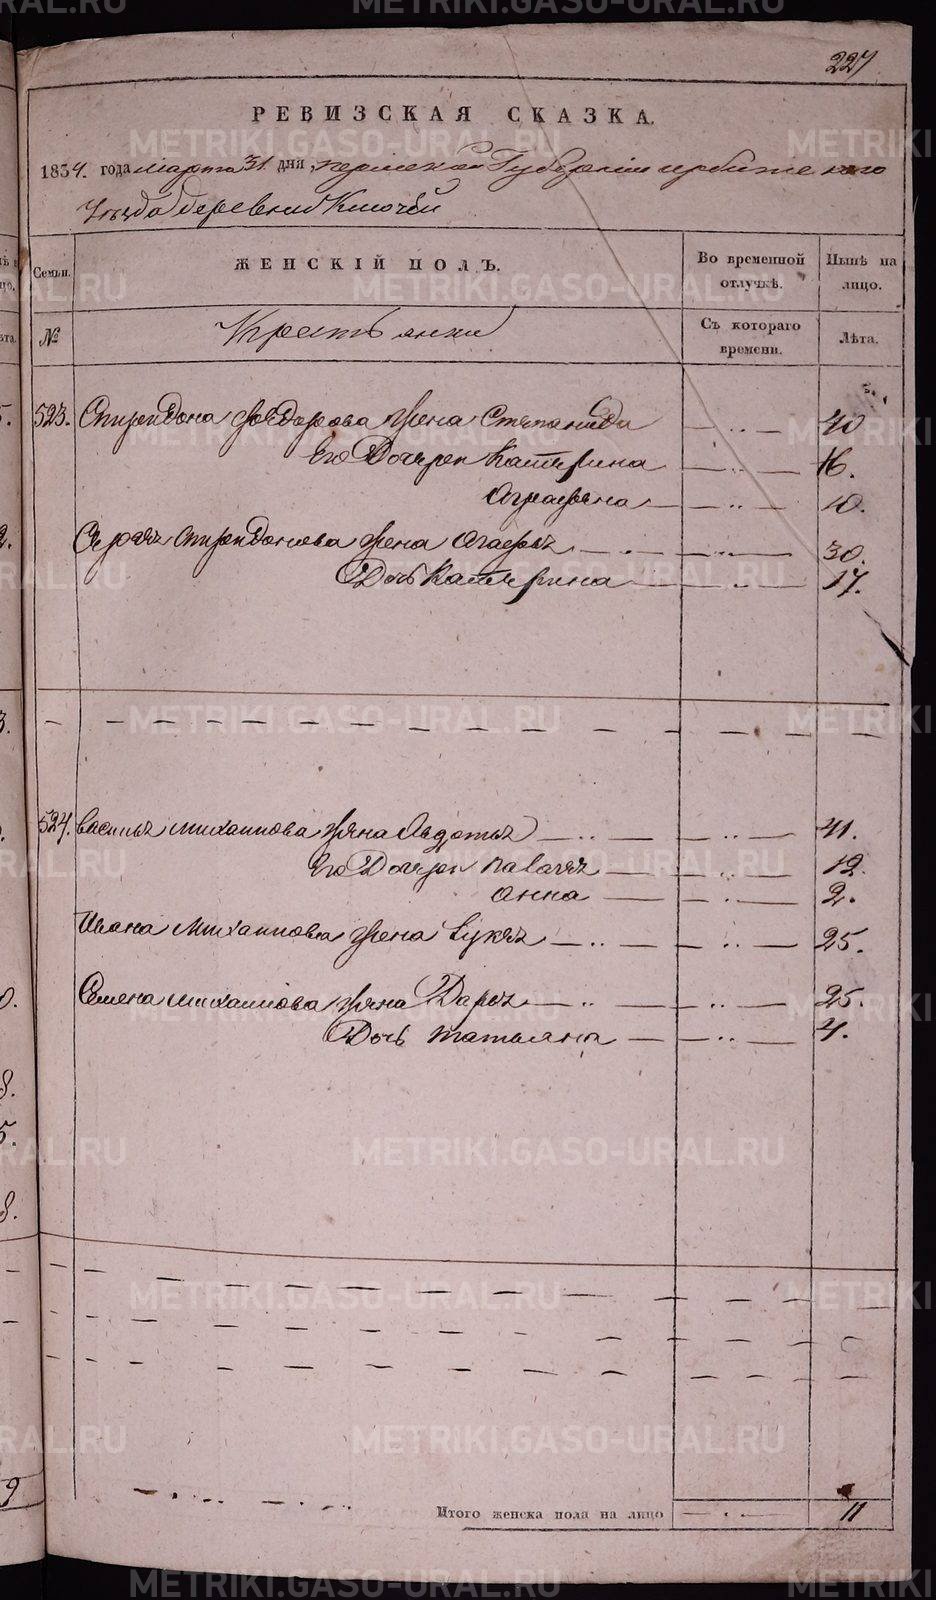 227
РЕВИЗСКАЯ СКАЗКА.
1834. года марта 31. дня, пермской Губернии ирбитского
Уезда деревни Ключей
Семьи. ЖЕНСКІЙ ПОЛЪ. Во временной отлучкѣ. Нынѣ на лицо.
№ Крестьянки Съ котораго времени. Лѣта.
523. Спиридона жена Степанида 40
Его Дочери Катерина 16.
Аграфена 10.
Спиридонова жена Агафья 30.
Дочь Катерина 17.
524. Василья михаилова жена Авдотья 41.
Его Дочери 12.
анна 2.
Ивана Михаилова жена Лукья 25.
Семена михаилова жена Дарья 25.
Дочь татьяна 4.
Итого женска пола на лицо 11
METRIKI.GASO-URAL.RU